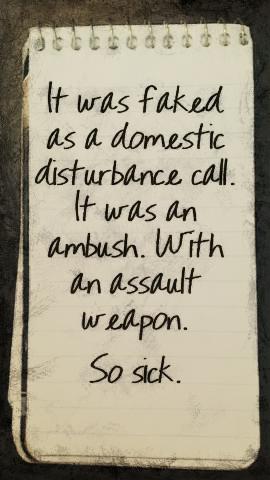 It was faked
as a domestic
disturbance call.
It was an
ambush. With
an assault
weapon.
So sick.